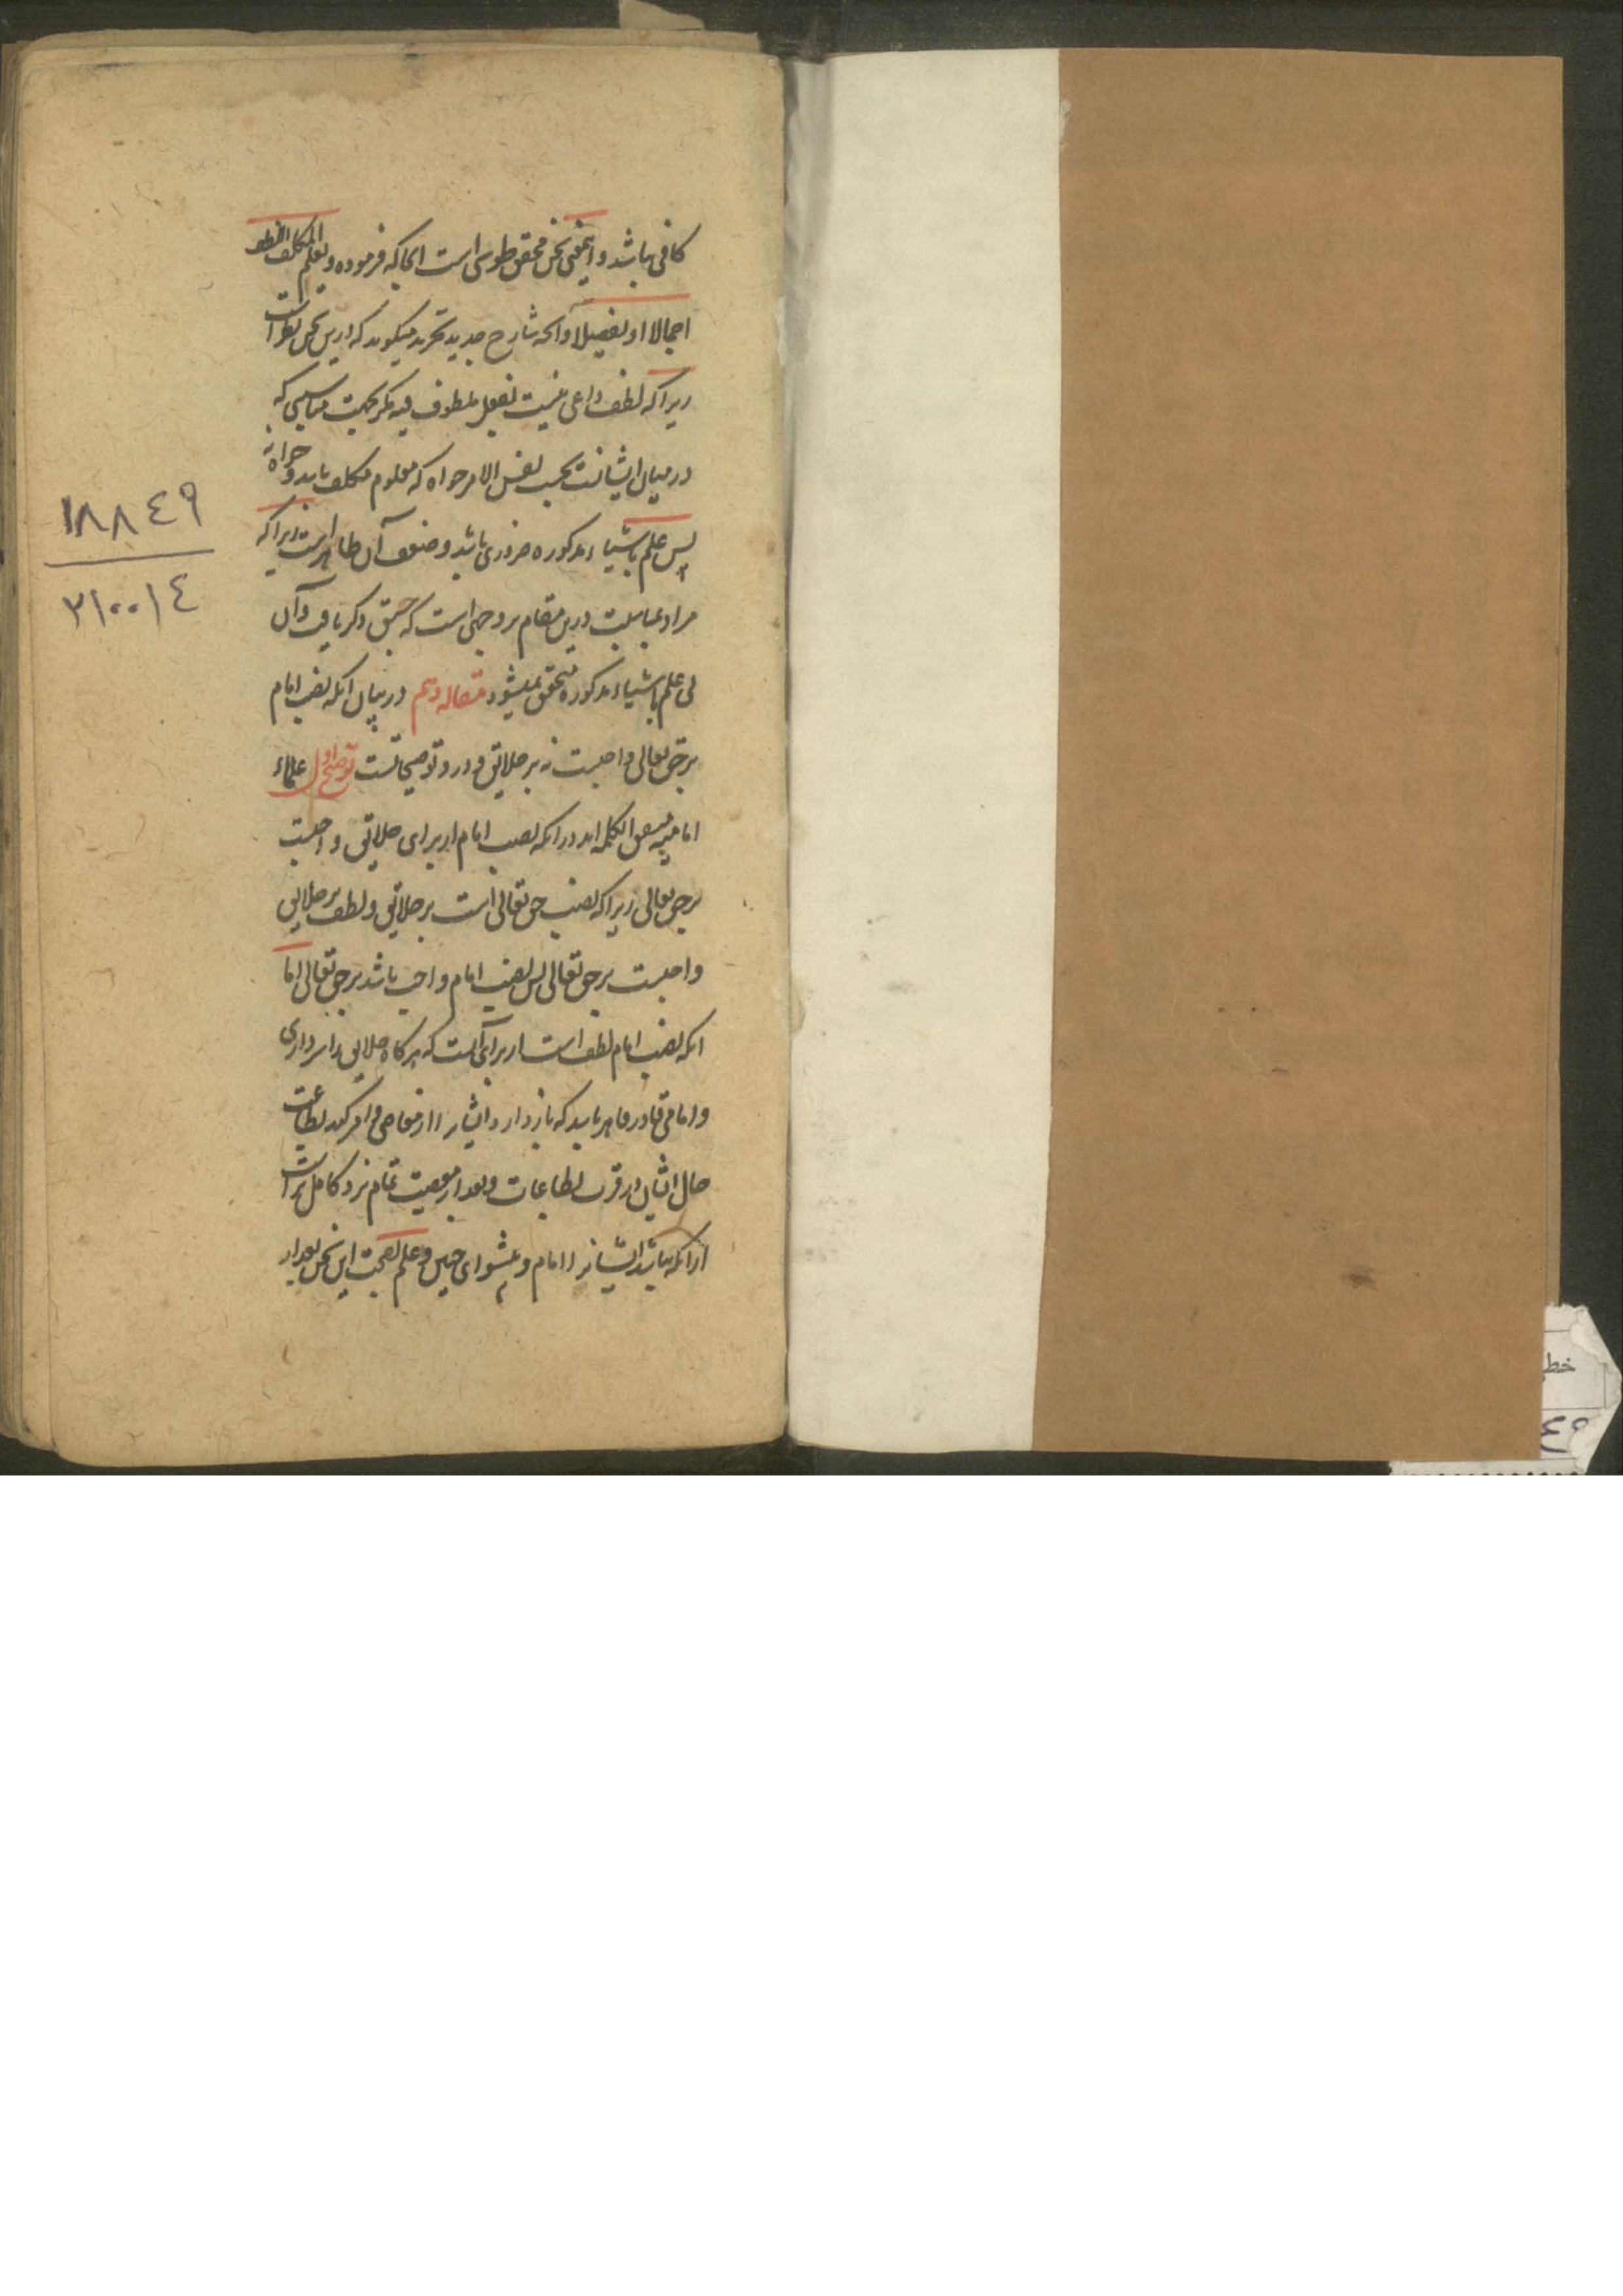 کافی باشد و اینمعنی سخن محقق طوسی است انجا که فرموده و یعلم المکلف اللطف
اجمالا او تفصیلا و آنکه شارح جدید تجرید میگوید که درین سخن نظر است
زیرا که لطف داعی نیست بفعل ملطوف فیه مگر بجهت مناسبتی که
در میان ایشانست بحسب نفس الامر خواه که معلوم مکلف باشد و خواه نه
پس علم باشیاء مذکوره ضروری باشد و ضعف آن ظاهر است زیرا که
مراد بمناسبت درین مقام بر وجهی است که ذکر یافت و آن
بی علم باشیاء مذکوره متحقق نمیشود مقاله دهم در بیان انکه نصب امام
بر حق تعالی واجبست نه بر خلایق و درو توضیحاتست توضیح اول علماء
امامیه متفق الکلمه اند در انکه نصب امام از برای خلایق واجبست
بر حق تعالی زیرا که نصب حق تعالی است بر خلایق و لطف بر خلایق
واجبست بر حق تعالی پس نصب امام واجب باشد بر حق تعالی اما
انکه نصب امام لطف است از برای آنست که هرگاه خلایق را سرداری
و امامی قادر قاهر باشد که باز دارد ایشانرا از معاصی و امر کند بطاعت
حال ایشان در قرب بطاعات و بعد از معصیت تمام تر و کامل تر است
از انکه نباشد ایشانرا امام و پیشوای چنین و علم بصحت این سخن بعد از
١٨٨٤٩
٢١٠٠١٤
خطی